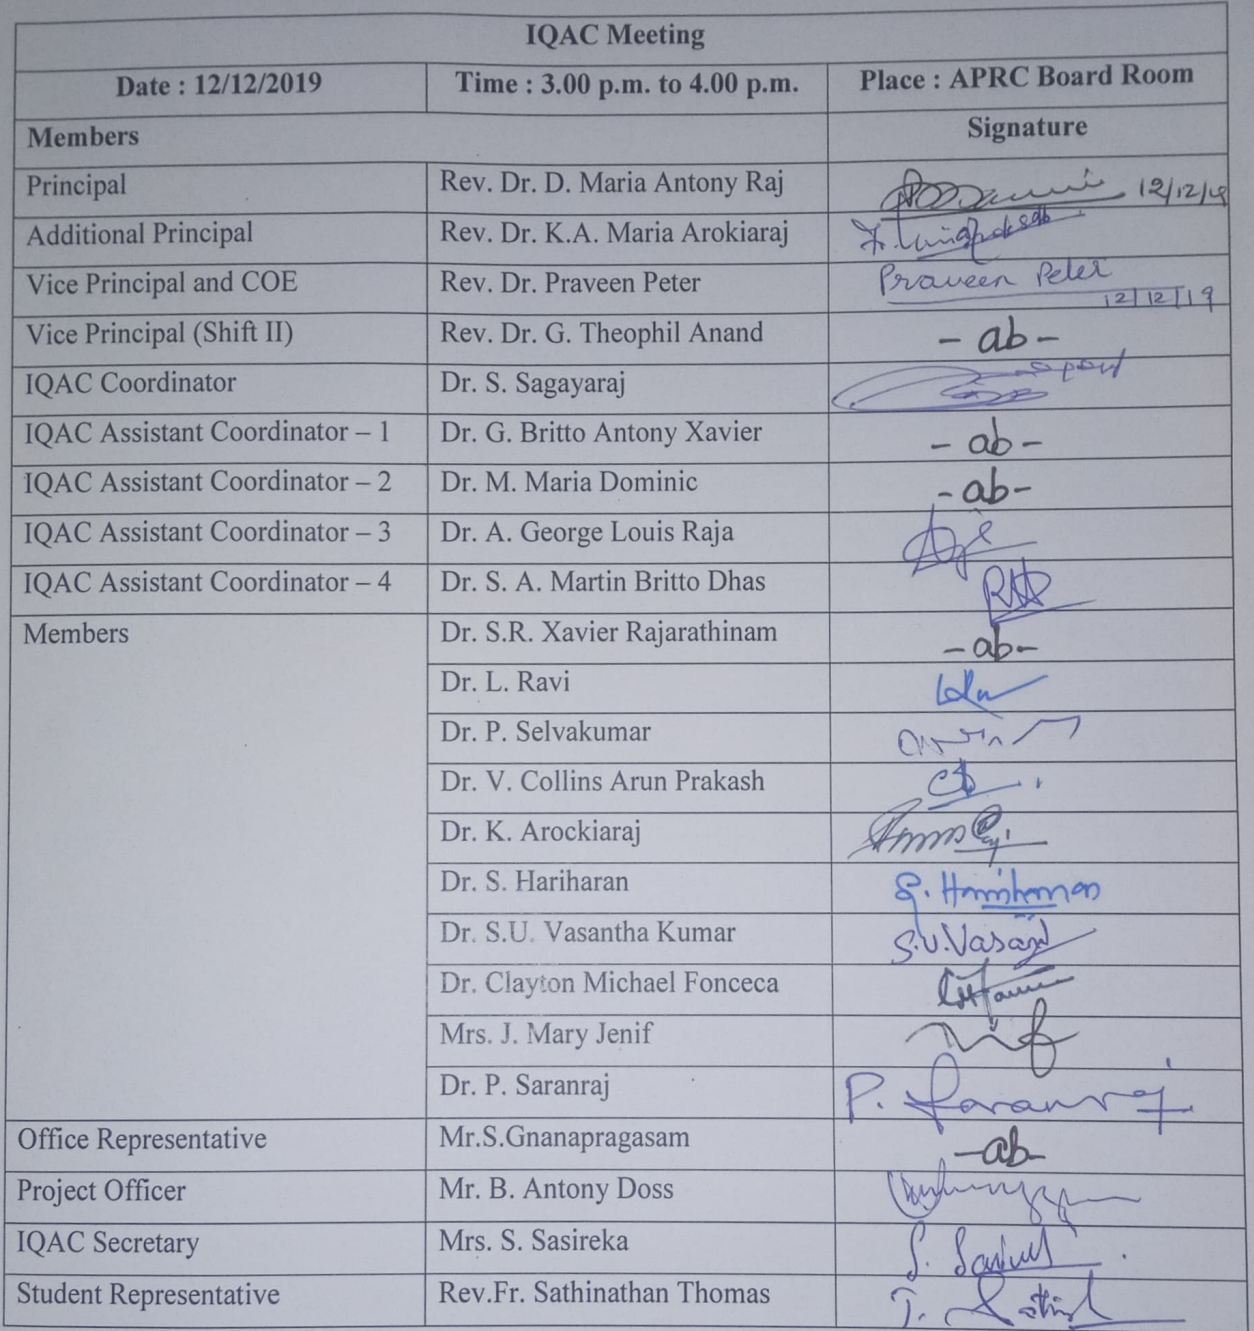 IQAC Meeting
Date : 12/12/2019 Time : 3.00 p.m. to 4.00 p.m. Place : APRC Board Room
Members Signature
Principal Rev. Dr. D. Maria Antony Raj 12/12/19
Additional Principal Rev. Dr. K.A. Maria Arokiaraj
Vice Principal and COE Rev. Dr. Praveen Peter Praveen Peter
12/12/19
Vice Principal (Shift II) Rev. Dr. G. Theophil Anand - ab -
IQAC Coordinator Dr. S. Sagayaraj
IQAC Assistant Coordinator – 1 Dr. G. Britto Antony Xavier - ab -
IQAC Assistant Coordinator – 2 Dr. M. Maria Dominic - ab -
IQAC Assistant Coordinator – 3 Dr. A. George Louis Raja
IQAC Assistant Coordinator – 4 Dr. S. A. Martin Britto Dhas
Members Dr. S.R. Xavier Rajarathinam - ab -
Dr. L. Ravi
Dr. P. Selvakumar
Dr. V. Collins Arun Prakash
Dr. K. Arockiaraj
Dr. S. Hariharan
Dr. S.U. Vasantha Kumar S.U.Vasan
Dr. Clayton Michael Fonceca
Mrs. J. Mary Jenif
Dr. P. Saranraj P. Saranraj
Office Representative Mr.S.Gnanapragasam - ab -
Project Officer Mr. B. Antony Doss
IQAC Secretary Mrs. S. Sasireka
Student Representative Rev.Fr. Sathinathan Thomas